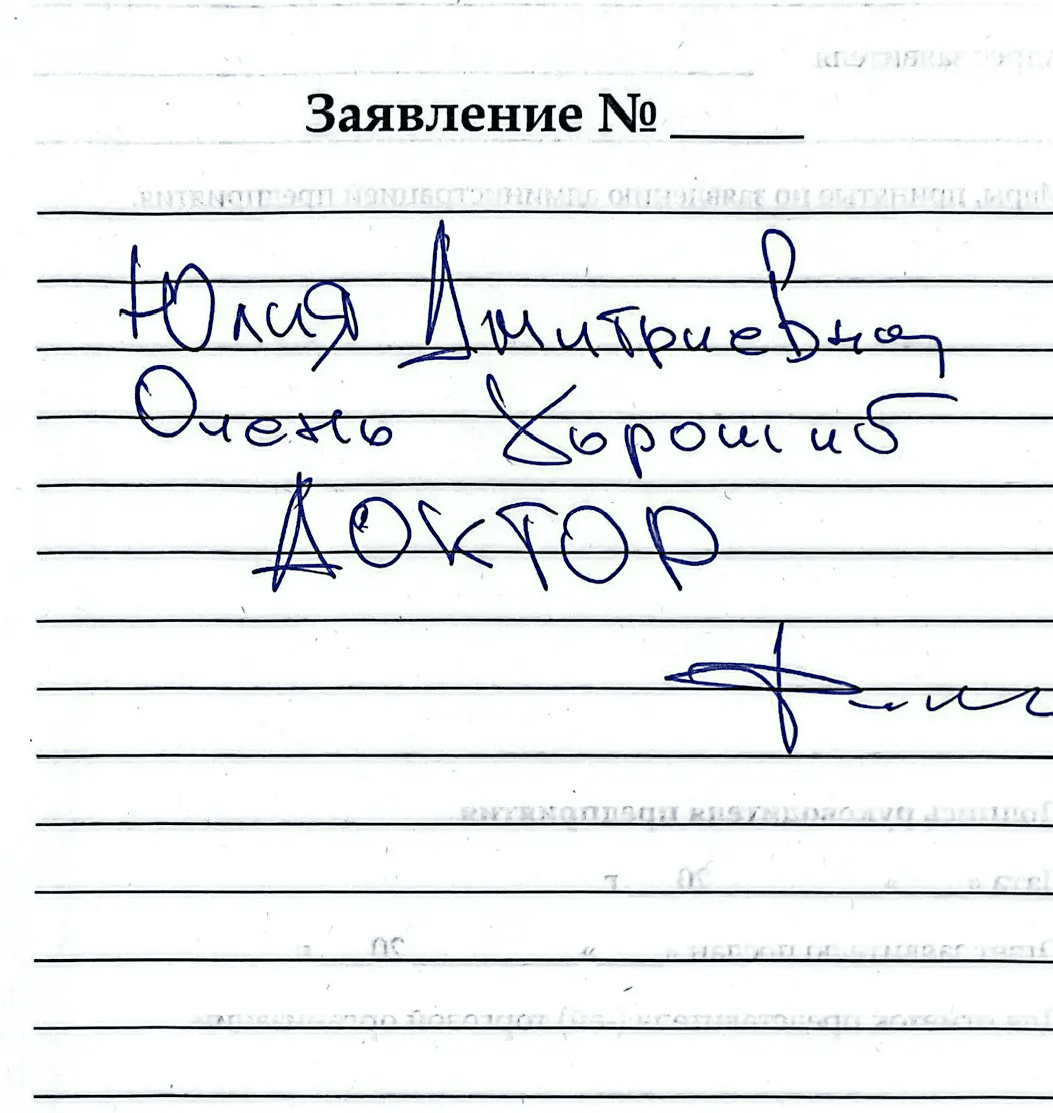 Заявление № _____
Юлия Дмитриевна
Очень Хороший
ДОКТОР